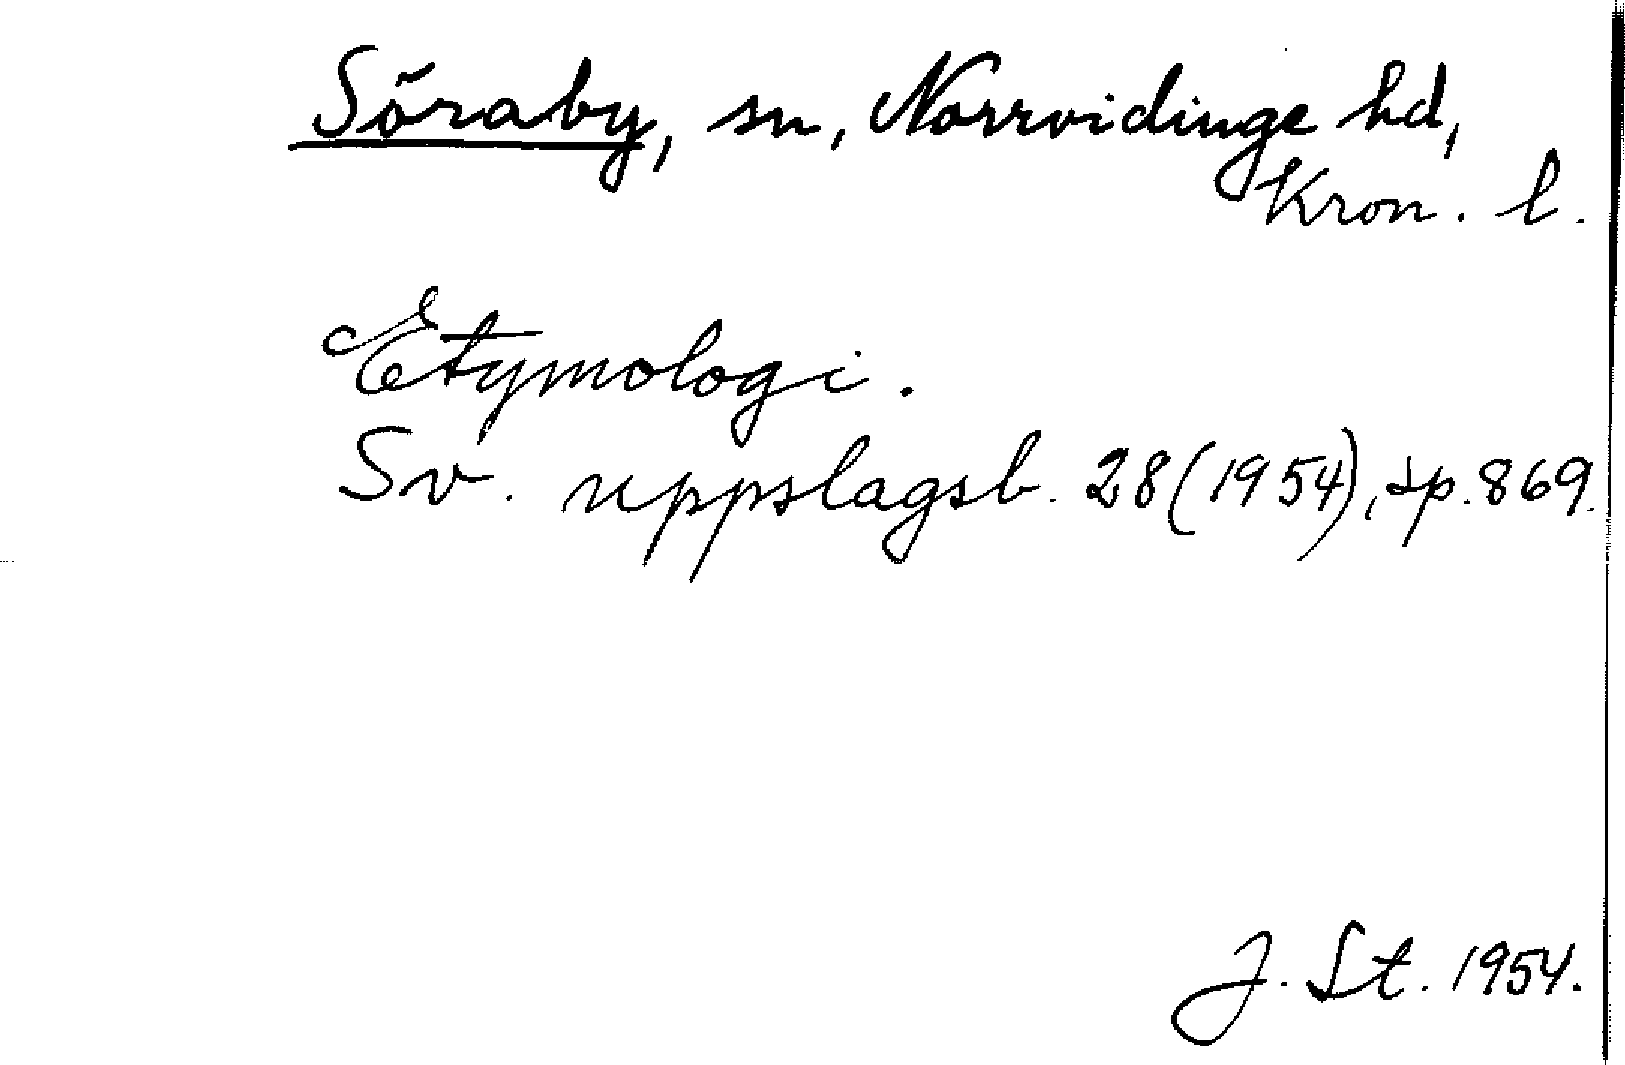 Söraby, sn, Norrvidinge hd,
Kron. l.
Etymologi.
Sv. uppslagsb. 28(1954), sp. 869.
J. St. 1954.